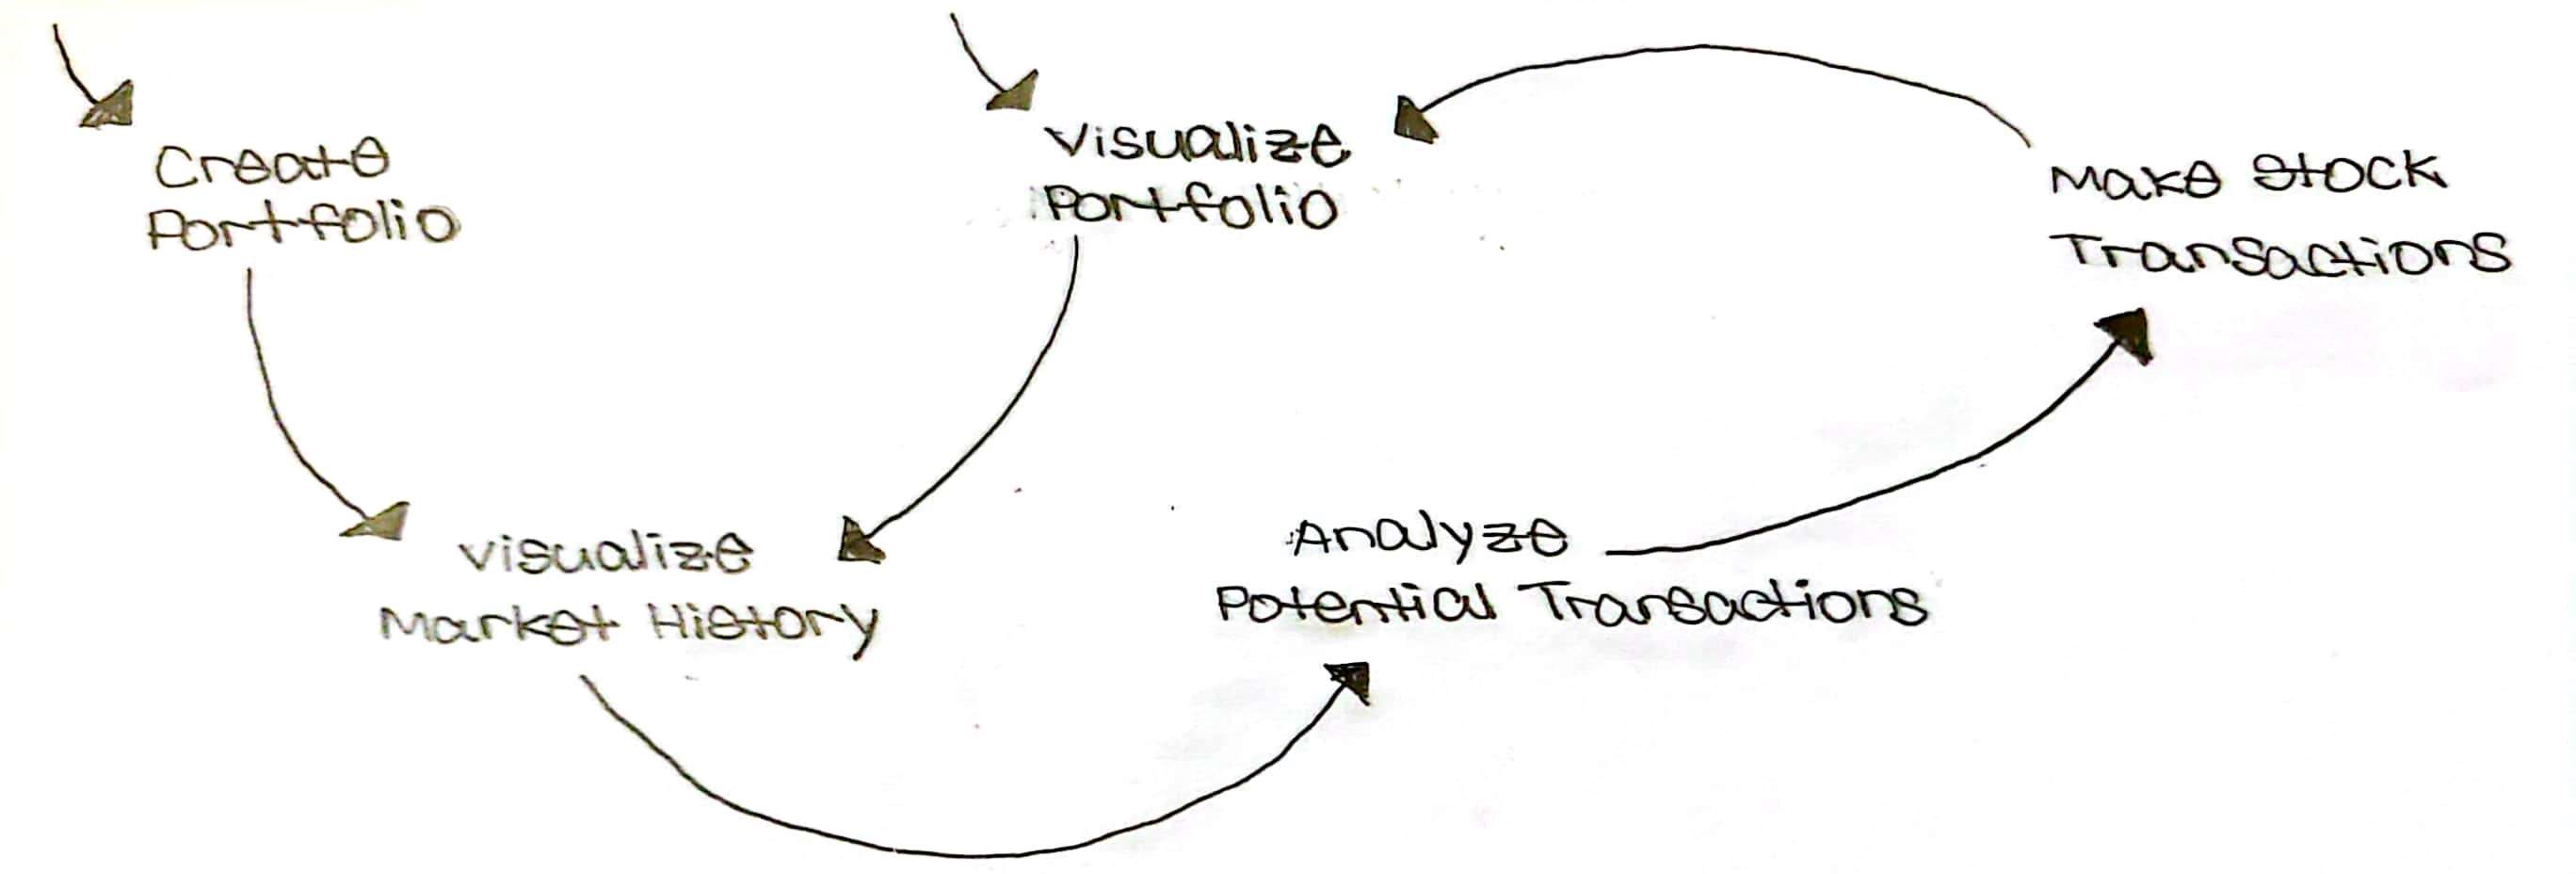 Create
Portfolio
Visualize
Portfolio
Make Stock
Transactions
Visualize
Market History
Analyze
Potential Transactions